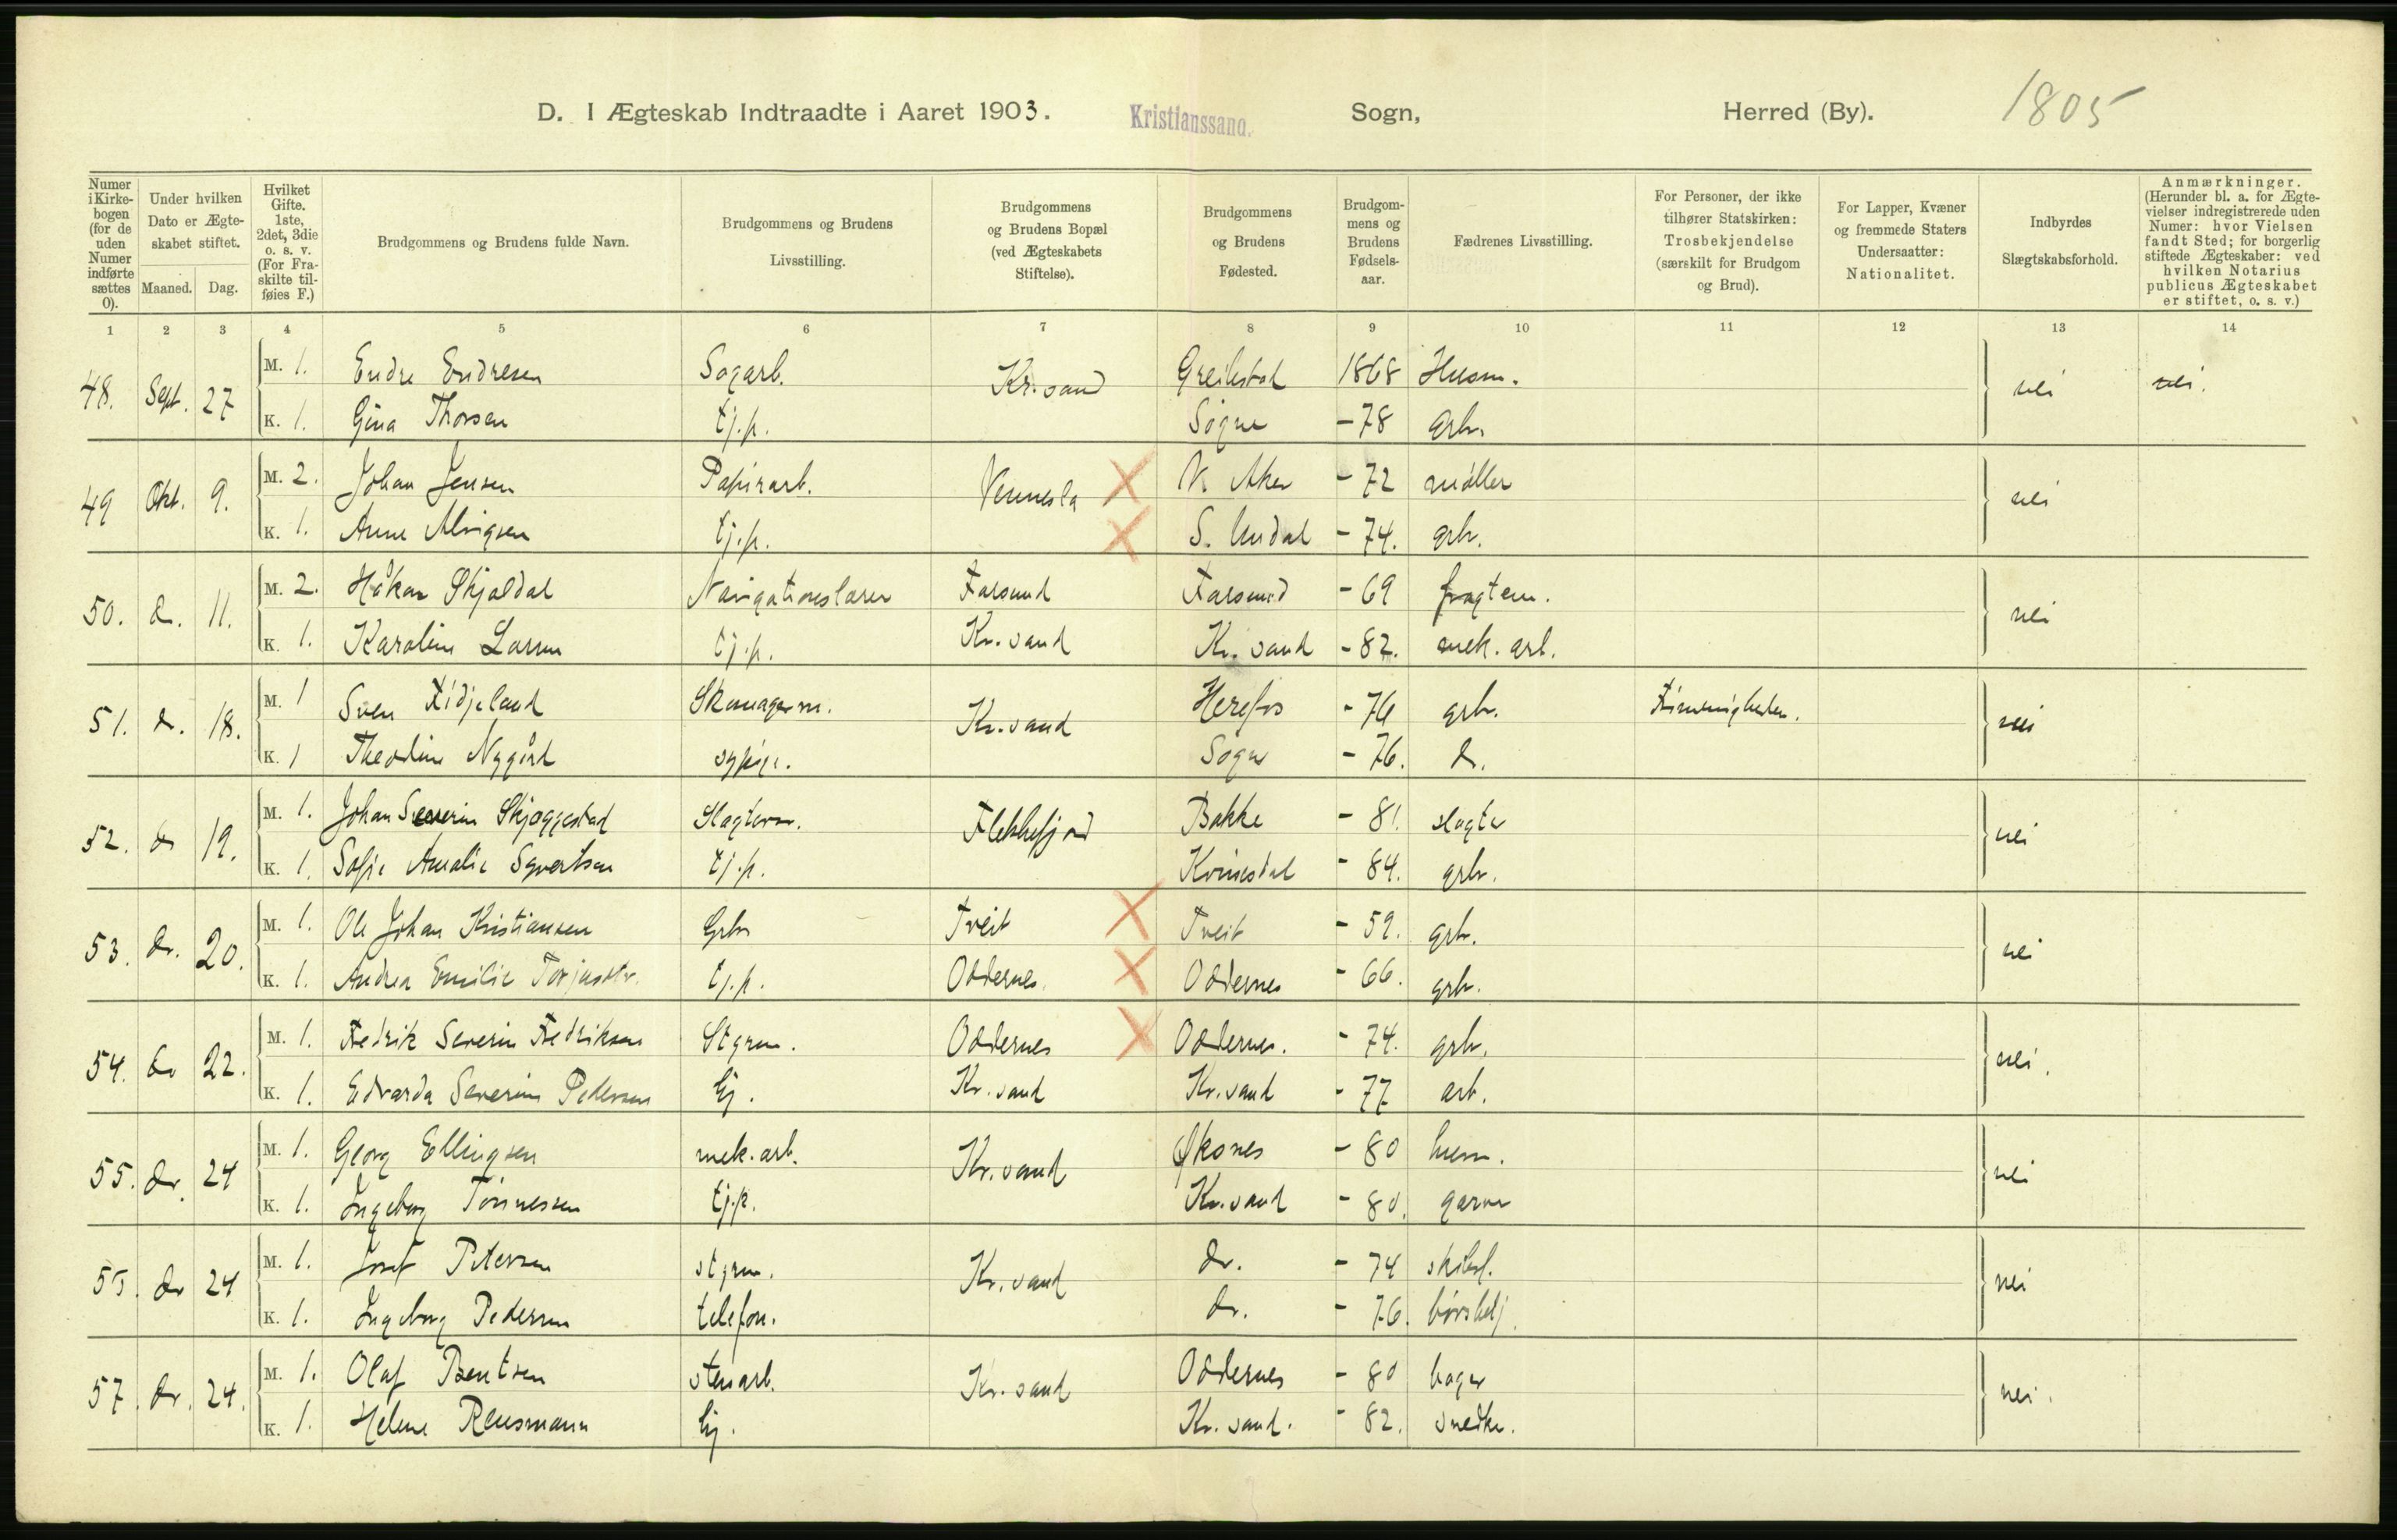 D. I Ægteskab Indtraadte i Aaret 1903. Kristianssand. Sogn, Herred (By). 1805
Numer i Kirkebogen (for de uden Numer indførte sættes 0).
Under hvilken Dato er Ægteskabet stiftet.
Maaned. Dag.
Hvilket Gifte. 1ste, 2det, 3die o. s. v. (For Fraskilte tilføies F.)
Brudgommens og Brudens fulde Navn.
Brudgommens og Brudens Livsstilling.
Brudgommens og Brudens Bopæl (ved Ægteskabets Stiftelse).
Brudgommens og Brudens Fødested.
Brudgommens og Brudens Fødselsaar.
Fædrenes Livsstilling.
For Personer, der ikke tilhører Statskirken: Trosbekjendelse (særskilt for Brudgom og Brud).
For Lapper, Kvæner og fremmede Staters Undersaatter: Nationalitet.
Indbyrdes Slægtskabsforhold.
Anmærkninger. (Herunder bl. a. for Ægtevielser indregistrerede uden Numer: hvor Vielsen fandt Sted; for borgerlig stiftede Ægteskaber: ved hvilken Notarius publicus Ægteskabet er stiftet, o. s. v.)
1 2 3 4 5 6 7 8 9 10 11 12 13 14
48. Sept. 27 M. 1. Endre Endresen Sagarb. Kr.sand Greipstad 1868 Husm. nei nei.
K. 1. Gina Thorsen tj.p. Søgne - 78 grbr.
49 Okt. 9. M. 2. Johan Jensen Papirarb. Vennesla V. Aker - 72 møller nei
K. 1. Anne Alvigsen tj.p. S. Undal - 74. grbr.
50. do. 11. M. 2. Håkon Skjoldal Navigationslærer Farsund Farsund - 69 fragtem. nei
K. 1. Karoline Larsen tj.p. Kr.sand Kr.sand - 82. mek. arb.
51. do. 18. M. 1 Sven Fidjeland Skomagerm. Kr.sand Herefos - 76 grbr. nei
K. 1 Theodine Nygård sypige. Søgne - 76. do.
52. do 19. M. 1. Johan Severin Skjeggestad Slagterm. Flekkefjord Bakke - 81. slagter nei
K. 1. Sofie Amalie Syvertsen tj.p. Kvinesdal - 84. grbr.
53. do. 20. M. 1. Ole Johan Kristiansen Grbr Tveit Tveit - 59. grbr. nei
K. 1. Andrea Emilie Torjusdtr. tj.p. Oddernes Oddernes - 66. grbr.
54. do 22. M. 1. Fedrik Severin Fedriksen Styrm. Oddernes Oddernes. - 74. grbr. nei.
K. 1. Edvarda Severine Pedersen tj. Kr.sand Kr.sand - 77 arb.
55. do. 24 M. 1. Georg Ellingsen mek.arb. Kr.sand Øksnes - 80 husm. nei
K. 1. Ingeborg Tönnessen tj.p. Kr.sand - 80. garver
55. do 24 M. 1. Josef Petersen styrm. Kr.sand do. - 74 skibsf. nei
K. 1. Ingeborg Pedersen telefon. do. - 76.
57. do. 24. M. 1. Olaf Bentsen stenarb. Kr.sand Oddernes - 80 bager nei.
K. 1. Helene Reusmann tj. Kr.sand. - 82. snedker.